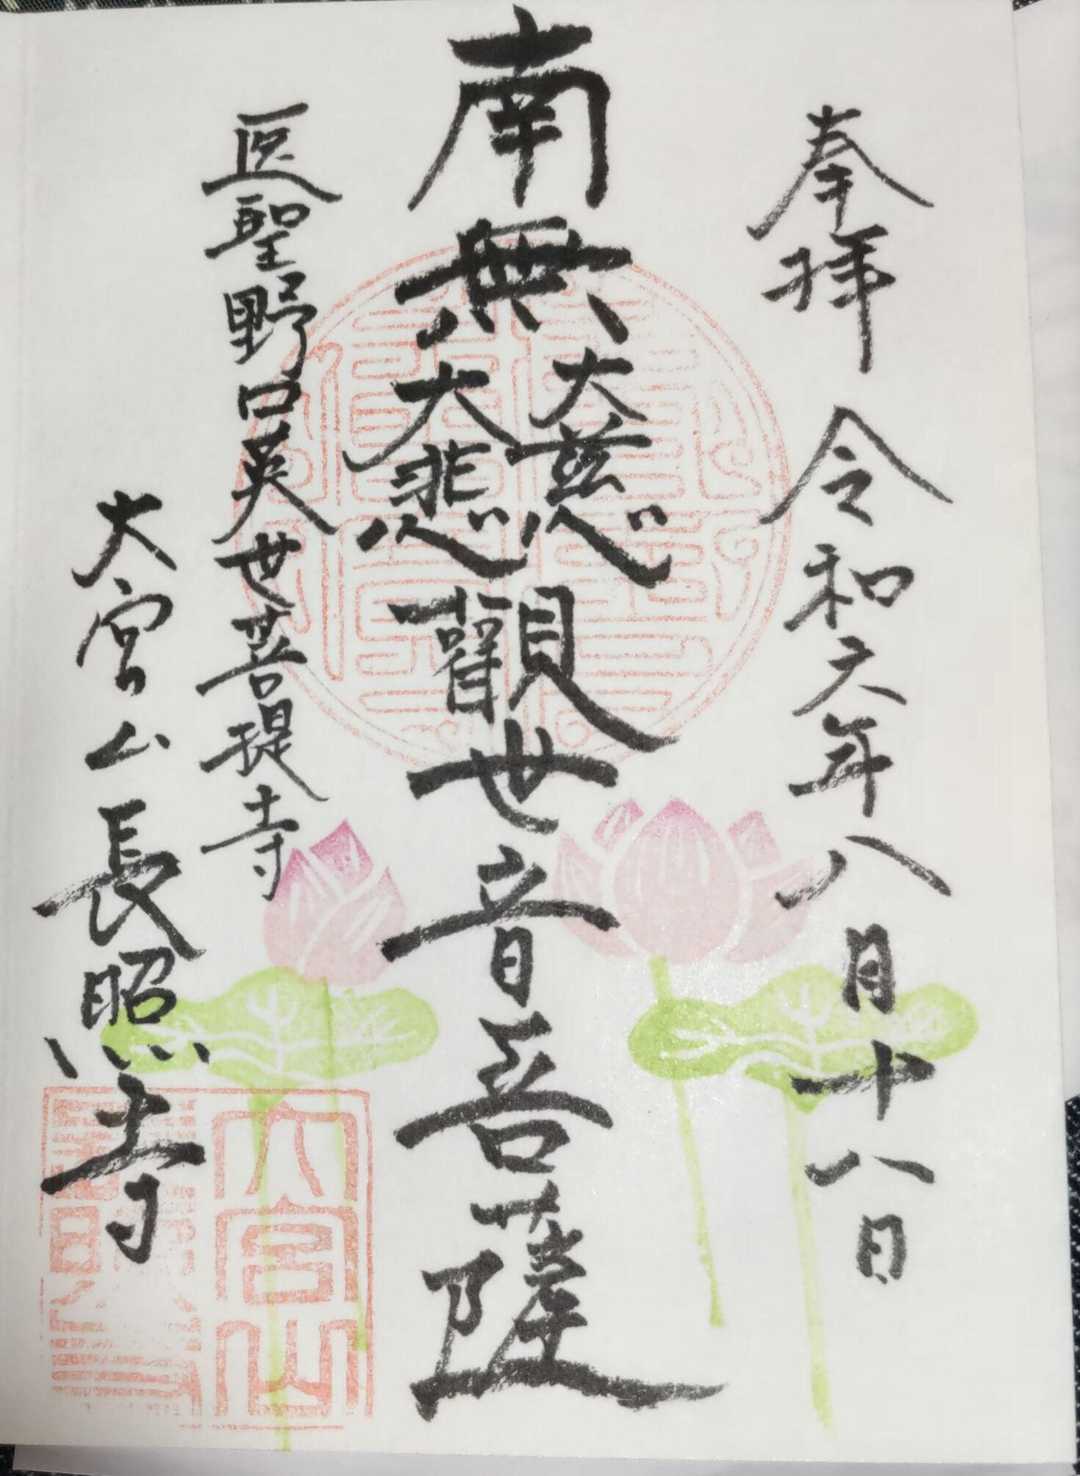 奉拝 令和六年八月十八日
南無大慈大悲觀世音菩薩
医聖野口英世菩提寺
大宮山長照寺
大宮山